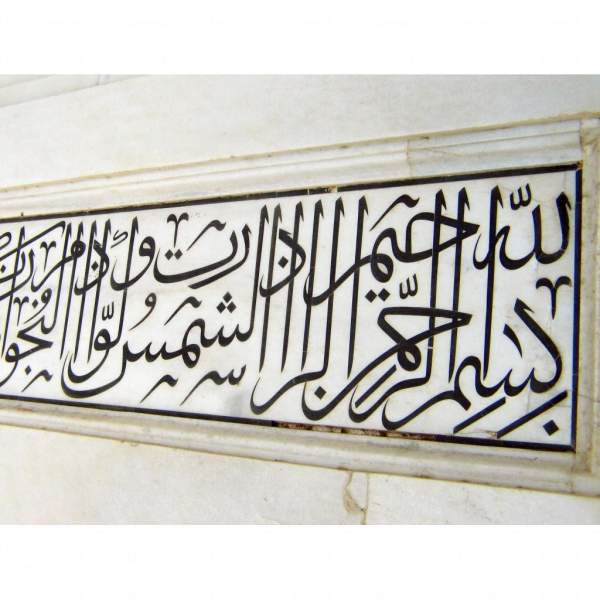 بسم الله الرحمن الرحيم اذا الشمس كورت واذا النجوم